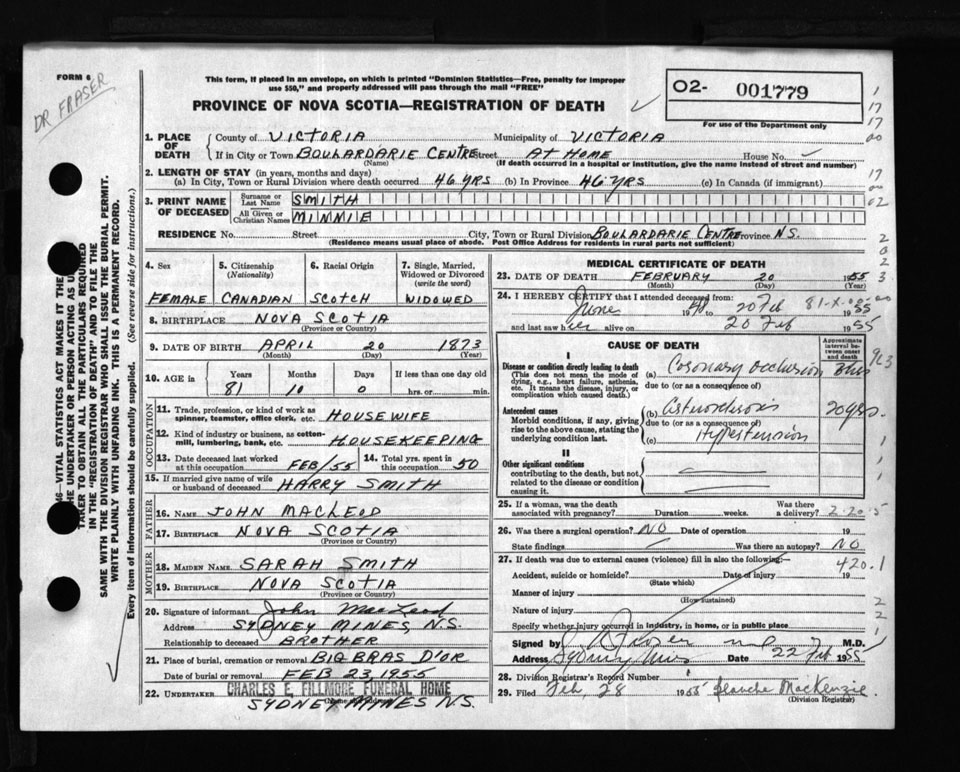 FORM 6
DR FRASER
This form, if placed in an envelope, on which is printed "Dominion Statistics—Free, penalty for improper
use $50," and properly addressed will pass through the mail "FREE"
PROVINCE OF NOVA SCOTIA—REGISTRATION OF DEATH
O2- 001779
For use of the Department only
1. PLACE OF DEATH
County of VICTORIA Municipality of VICTORIA
If in City or Town BOULARDARIE CENTRE Street AT HOME House No.
(Name) (If death occurred in a hospital or institution, give the name instead of street and number)
2. LENGTH OF STAY (in years, months and days)
(a) In City, Town or Rural Division where death occurred 46 YRS (b) In Province 46 YRS (c) In Canada (if immigrant)
3. PRINT NAME OF DECEASED
Surname or Last Name SMITH
All Given or Christian Names MINNIE
RESIDENCE No. Street City, Town or Rural Division BOULARDARIE CENTRE Province N.S.
(Residence means usual place of abode. Post Office Address for residents in rural parts not sufficient)
4. Sex
FEMALE
5. Citizenship (Nationality)
CANADIAN
6. Racial Origin
SCOTCH
7. Single, Married, Widowed or Divorced (write the word)
WIDOWED
8. BIRTHPLACE NOVA SCOTIA
(Province or Country)
9. DATE OF BIRTH APRIL 20 1873
(Month) (Day) (Year)
10. AGE in Years Months Days If less than one day old
81 10 0 hrs. or min.
OCCUPATION
11. Trade, profession, or kind of work as
spinner, teamster, office clerk, etc. HOUSEWIFE
12. Kind of industry or business, as cotten-
mill, lumbering, bank, etc. HOUSEKEEPING
13. Date deceased last worked at this occupation FEB/55 14. Total yrs. spent in this occupation 50
15. If married give name of wife
or husband of deceased HARRY SMITH
FATHER
16. NAME JOHN MACLEOD
17. BIRTHPLACE NOVA SCOTIA
(Province or Country)
MOTHER
18. MAIDEN NAME SARAH SMITH
19. BIRTHPLACE NOVA SCOTIA
(Province or Country)
20. Signature of informant John MacLeod
Address SYDNEY MINES, N.S.
Relationship to deceased BROTHER
21. Place of burial, cremation or removal BIG BRAS D'OR
Date of burial or removal FEB 23, 1955
22. UNDERTAKER CHARLES E. FILLMORE FUNERAL HOME
SYDNEY MINES N.S.
MEDICAL CERTIFICATE OF DEATH
23. DATE OF DEATH FEBRUARY 20 1955
(Month) (Day) (Year)
24. I HEREBY CERTIFY that I attended deceased from:
June 1948 to 20 Feb 1955
and last saw her alive on 20 Feb 1955
81-X-0
CAUSE OF DEATH
Approximate interval between onset and death
I
Disease or condition directly leading to death
(This does not mean the mode of
dying, e.g., heart failure, asthenia,
etc. It means the disease, injury, or
complication which caused death.)
(a) Coronary Occlusion
due to (or as a consequence of)
Antecedent causes
Morbid conditions, if any, giving
rise to the above cause, stating the
underlying condition last.
(b) Arteriosclerosis 20 yrs.
due to (or as a consequence of)
(c) Hypertension
II
Other significant conditions
contributing to the death, but not
related to the disease or condition
causing it.
25. If a woman, was the death
associated with pregnancy? Duration weeks. Was there a delivery? 2-20-5
26. Was there a surgical operation? NO Date of operation 19
State findings Was there an autopsy? NO
27. If death was due to external causes (violence) fill in also the following:— 420.1
Accident, suicide or homicide? Date of injury 19
(State which)
Manner of injury
(How sustained)
Nature of injury
Specify whether injury occurred in industry, in home, or in public place
Signed by M.D.
Address Sydney Mines Date 22 Feb 1955
28. Division Registrar's Record Number 1
29. Filed Feb, 28 1955 Blanche MacKenzie
(Division Registrar)
1
17
17
00
17
00
02
2
0
2
3
00
903
VITAL STATISTICS ACT MAKES IT THE
THE UNDERTAKER OR PERSON ACTING AS
TAKER TO OBTAIN ALL THE PARTICULARS REQUIRED
IN THE "REGISTRATION OF DEATH" AND TO FILE THE
SAME WITH THE DIVISION REGISTRAR WHO SHALL ISSUE THE BURIAL PERMIT.
WRITE PLAINLY WITH UNFADING INK. THIS IS A PERMANENT RECORD.
Every item of information should be carefully supplied. (See reverse side for instructions.)